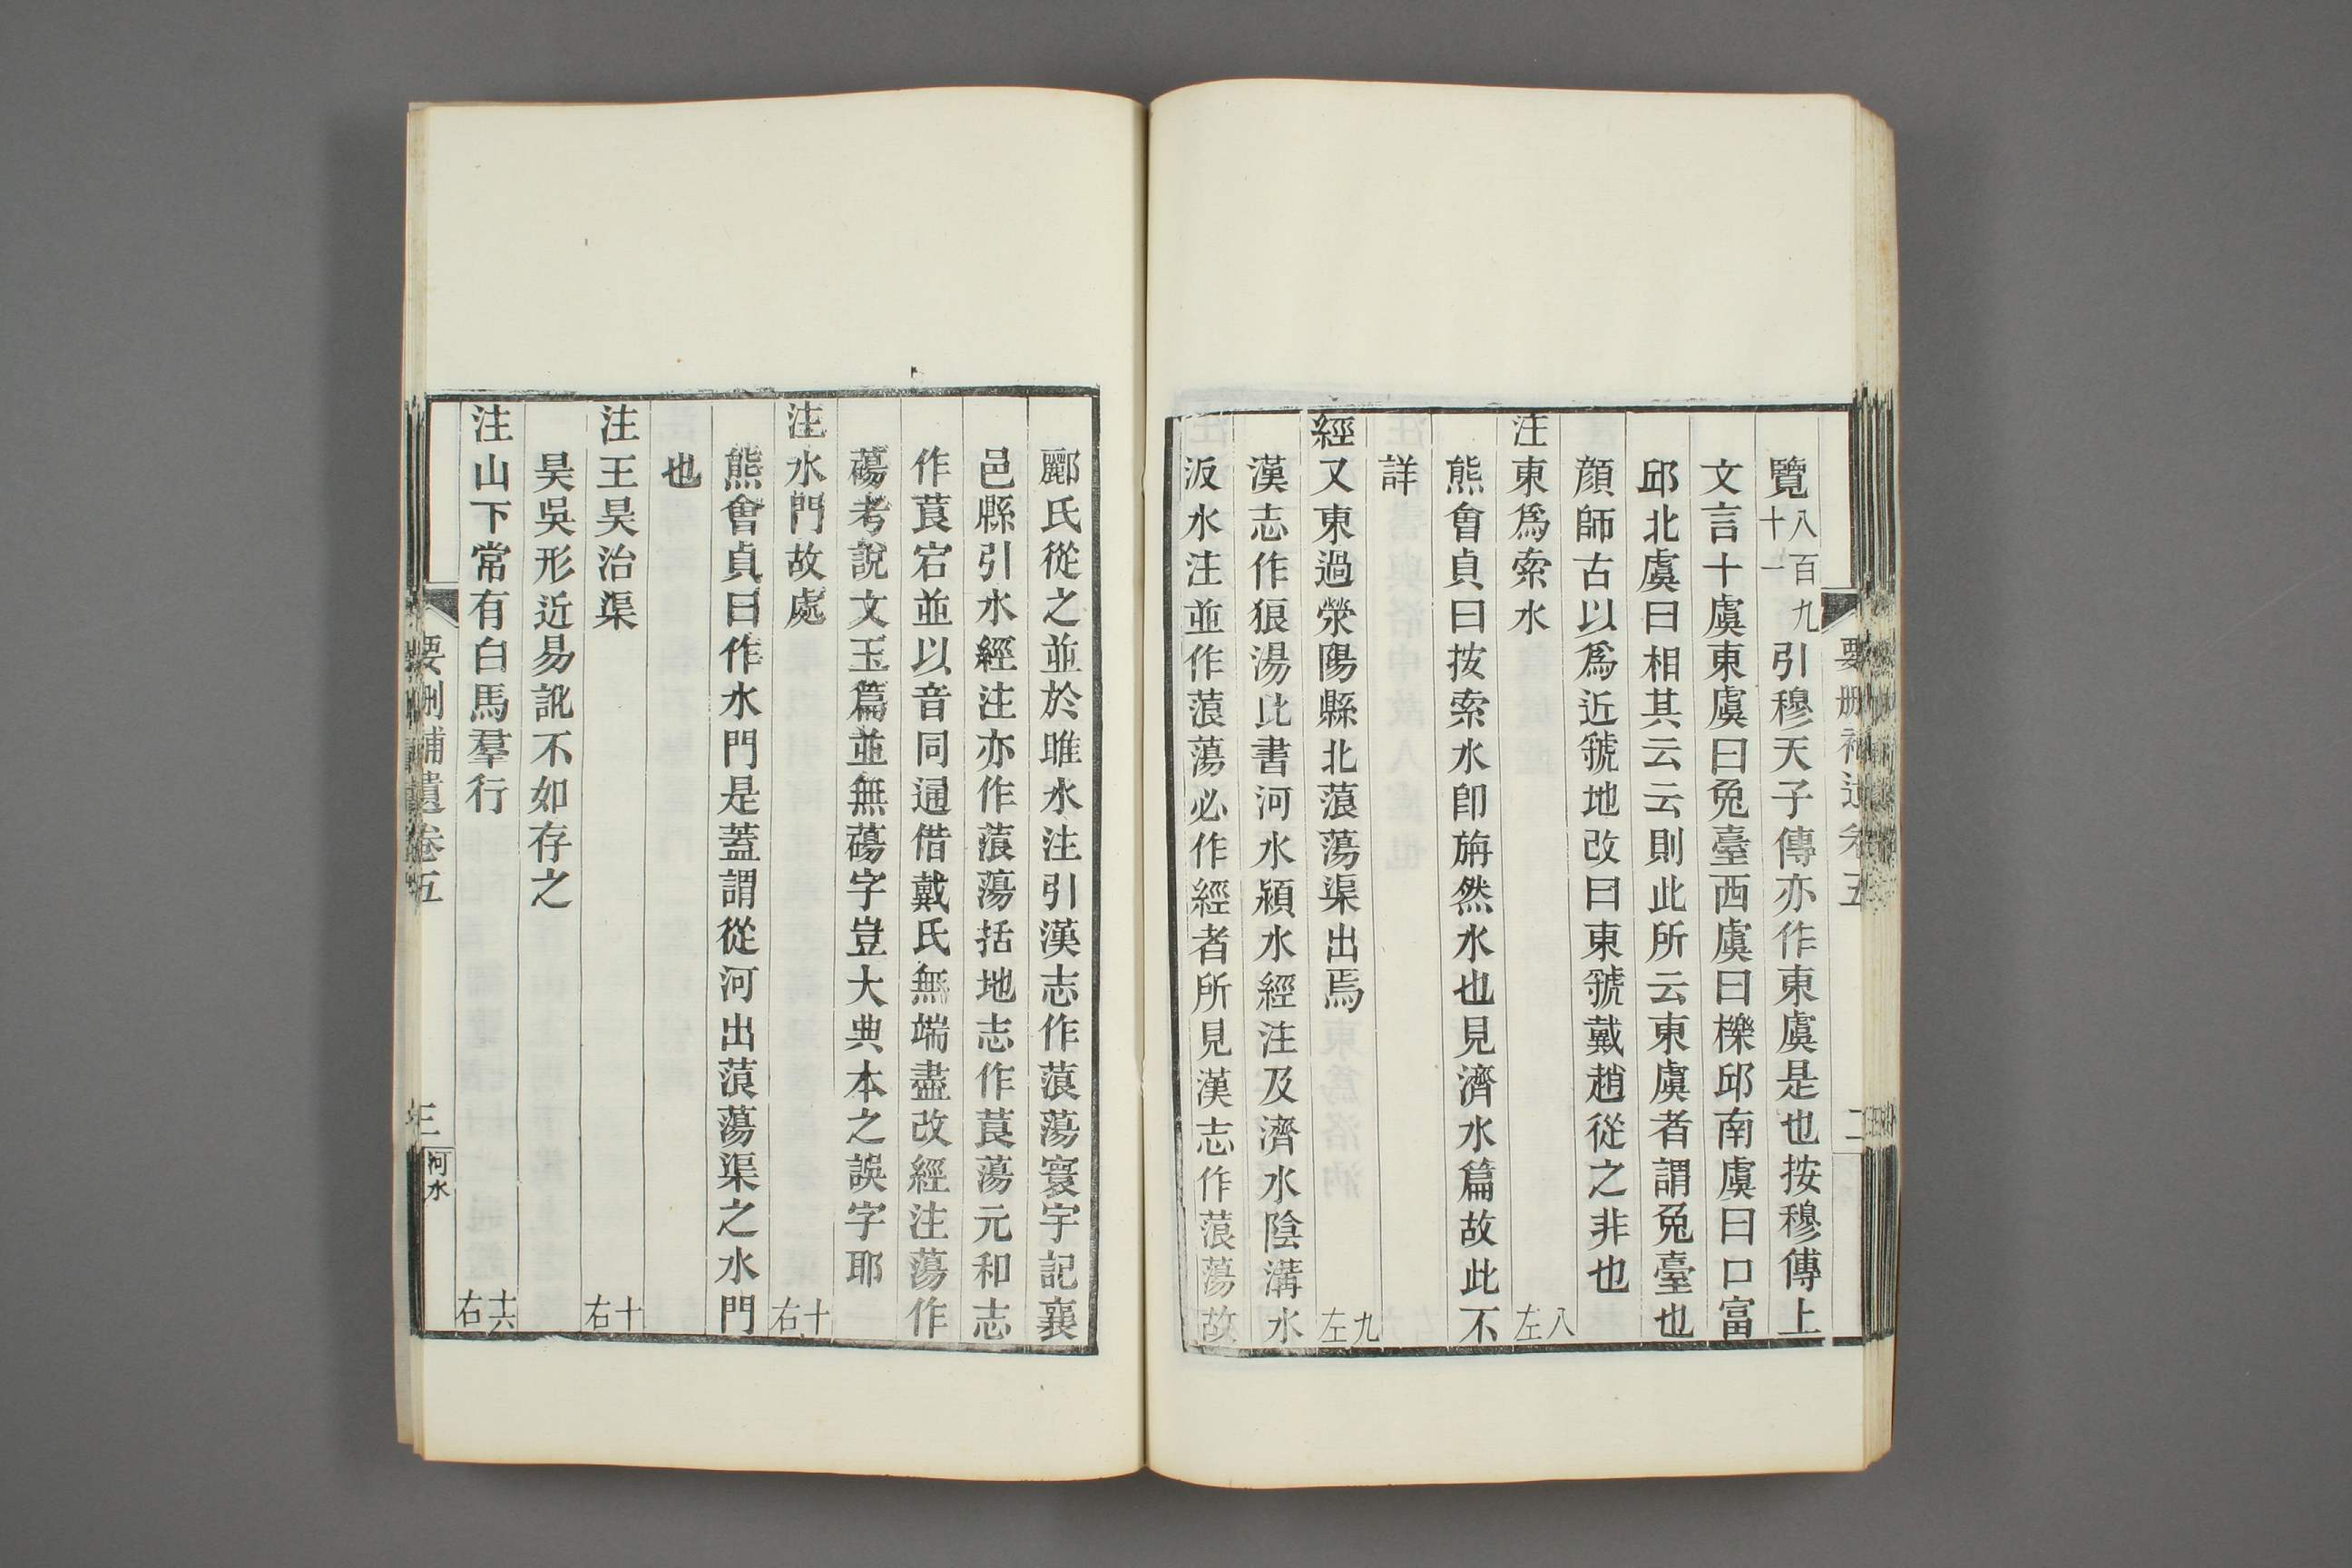 覽八百九十一引穆天子傳亦作東虞是也按穆傳上
文言十虞東虞曰兔臺西虞曰櫟邱南虞曰口富
邱北虞曰相其云云則此所云東虞者謂兔臺也
顏師古以爲近虢地改曰東虢戴趙從之非也
注東爲索水 八左
熊會貞曰按索水卽旃然水也見濟水篇故此不
詳
經又東過滎陽縣北蒗蕩渠出焉 九左
漢志作狼湯此書河水潁水經注及濟水陰溝水
汳水注並作蒗蕩必作經者所見漢志作蒗蕩故
要刪補遺卷五
二
酈氏從之並於睢水注引漢志作蒗蕩寰宇記襄
邑縣引水經注亦作蒗蕩括地志作莨蕩元和志
作莨宕並以音同通借戴氏無端盡改經注蕩作
䓪考說文玉篇並無䓪字豈大典本之誤字耶
注水門故處 十右
熊會貞曰作水門是蓋謂從河出蒗蕩渠之水門
也
注王昊治渠 十右
昊吳形近易訛不如存之
注山下常有白馬羣行 十六右
要刪補遺卷五
三
河水